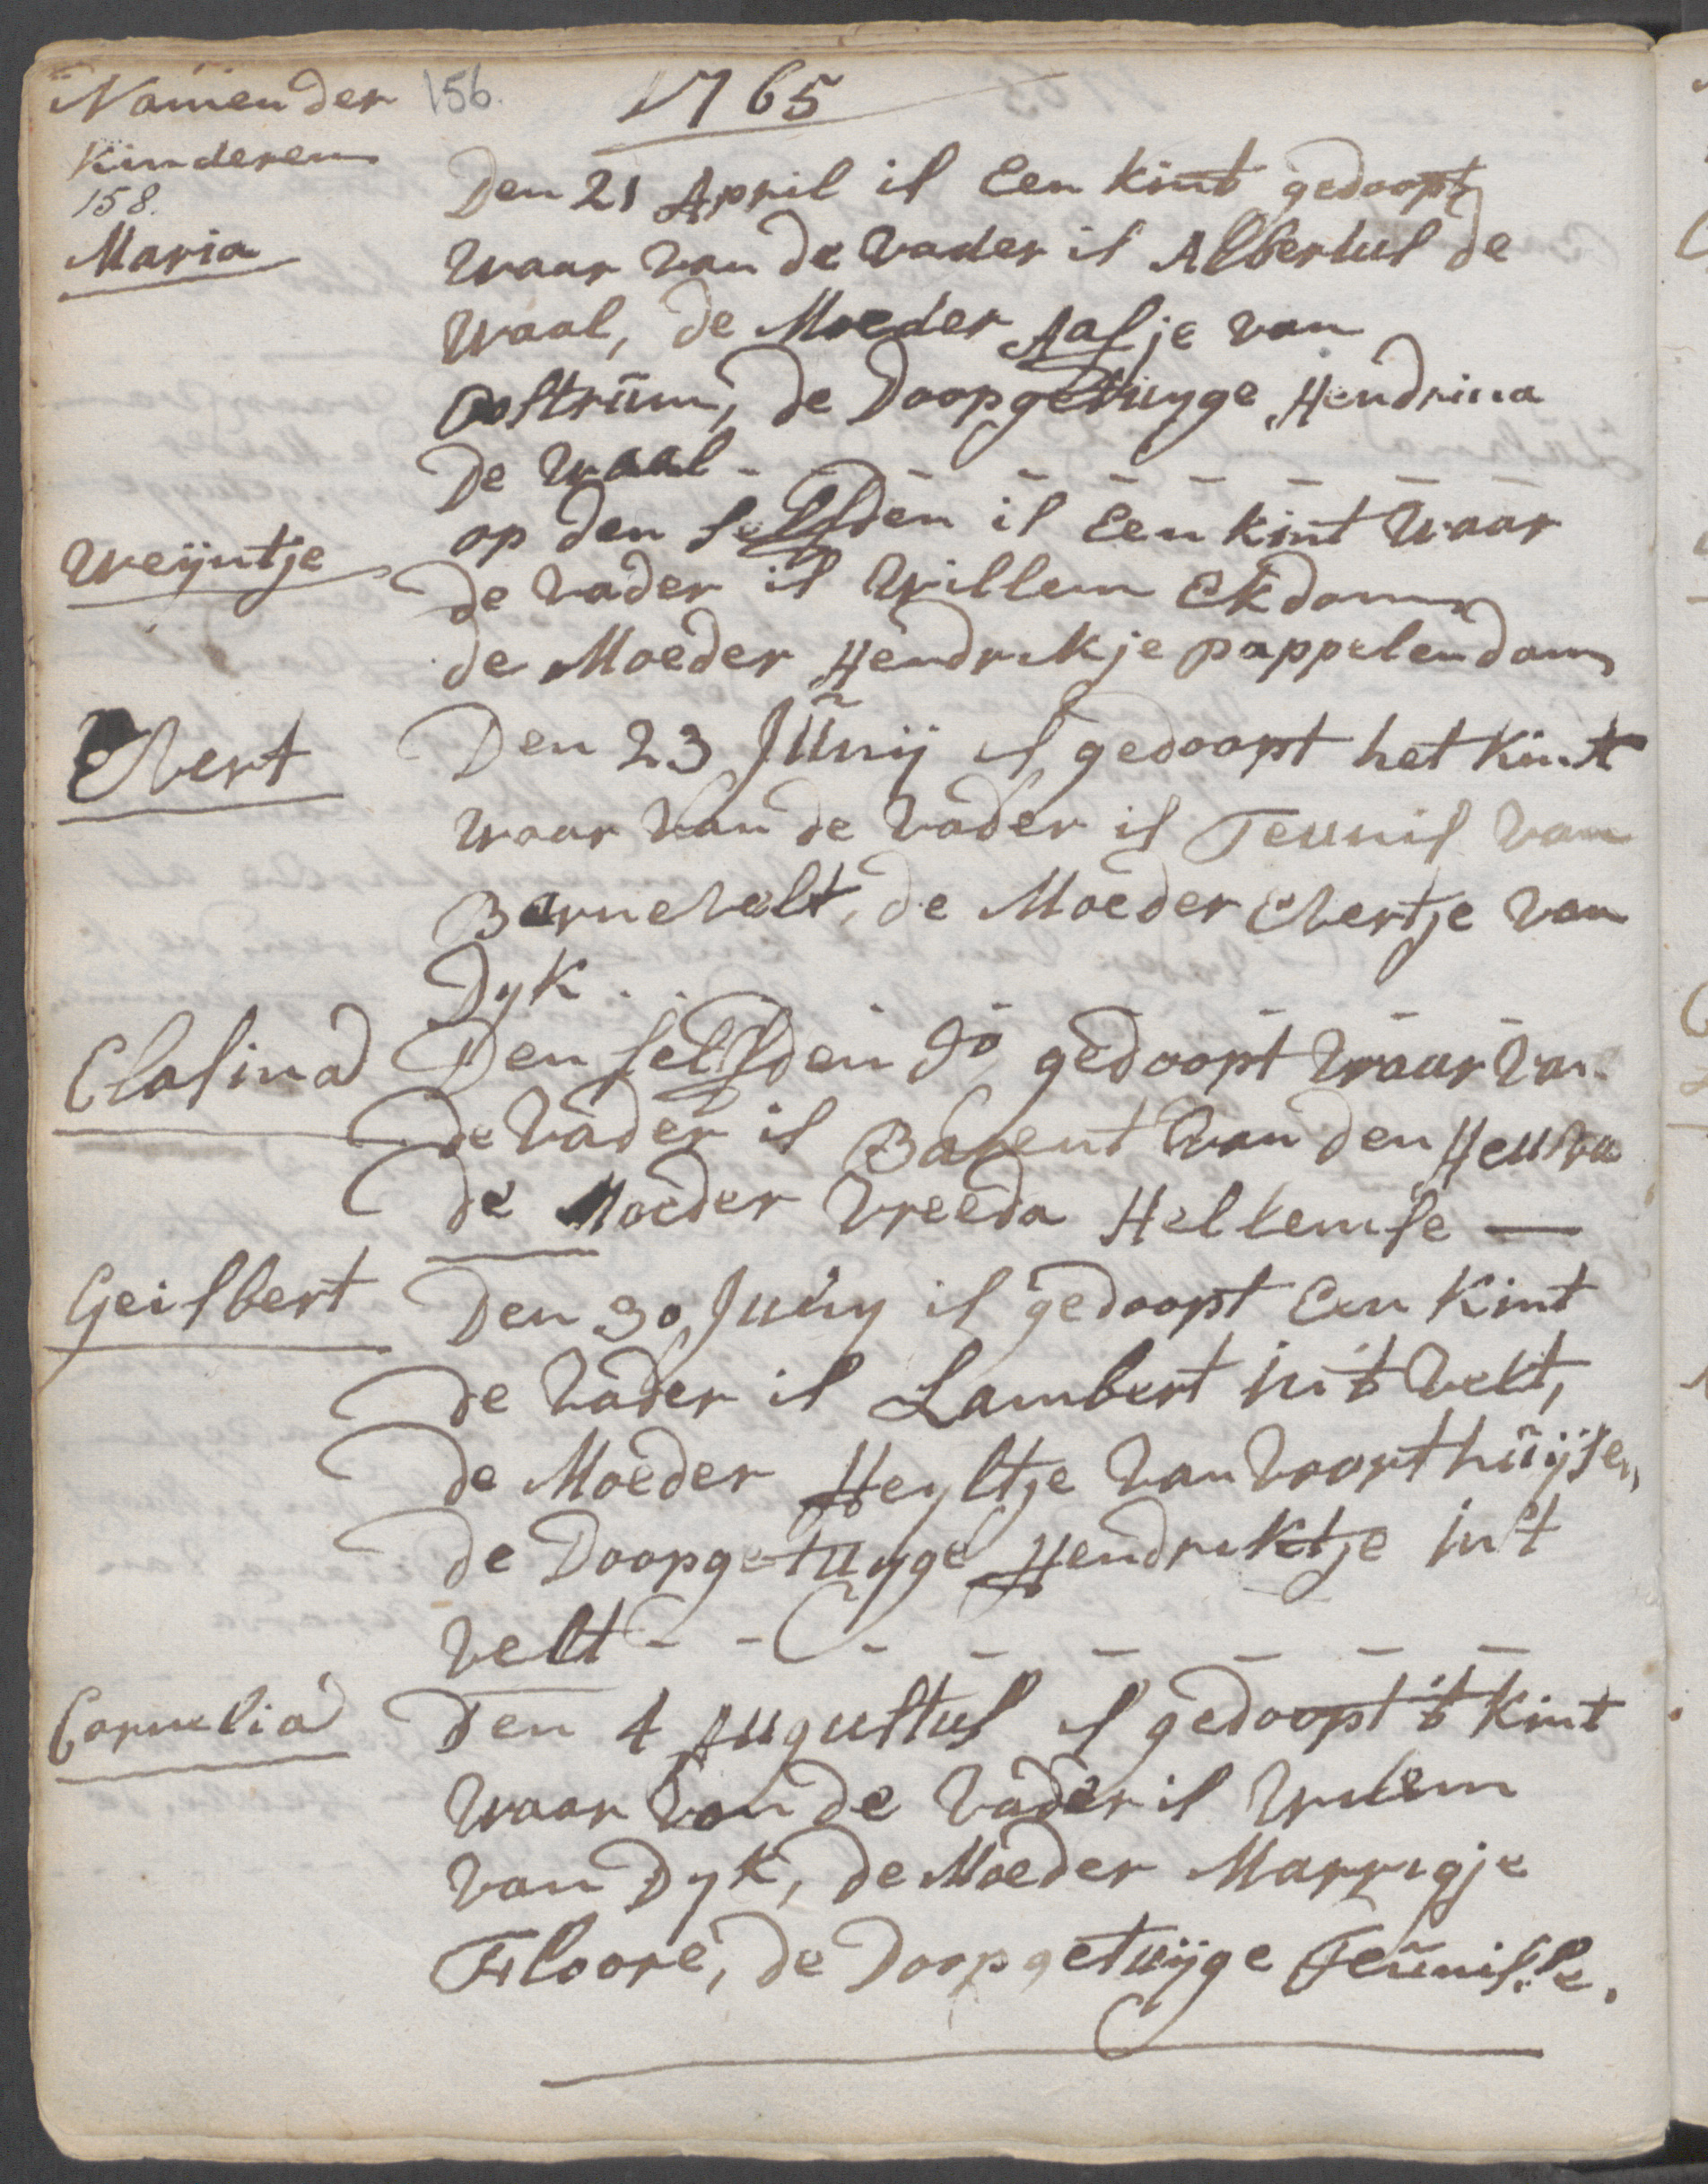 Namen der
Kinderen
156.
1765
158.
Maria
Den 21 April is Een kint gedoopt
Waar van de vader is Albertus de
Waal, de Moeder Aafje van
Oostrum, de Doopgetuyge Hendrina
De Waal - - - - - - - -
Weijntje
op den selfsden is Een kint waar
de vader is Willem Ekdom
de Moeder Hendrikje pappelendam
Evert
Den 23 Junij is gedoopt het Kint
waar van de vader is Teunis van
Barnevelt, de Moeder Evertje van
Dyk . .
Clasina
Den selfsden do gedoopt waar van
de vader is Barent van den Heuvel
de Moeder Vreeda Hellemse —
Geisbert
Den 30 Juny is gedoopt Een Kint
de vader is Lambert in't velt,
de Moeder Heyltje van voorthuijsen,
de Doopgetuyge Hendriktje in't
velt - - - - - - - -
Cornelia
Den 4 Augustus is gedoopt 't Kint
waar van de vader is Willem
van Dyk, de Moeder Marrigje
Floore, de Doopgetuijge Teunisse.